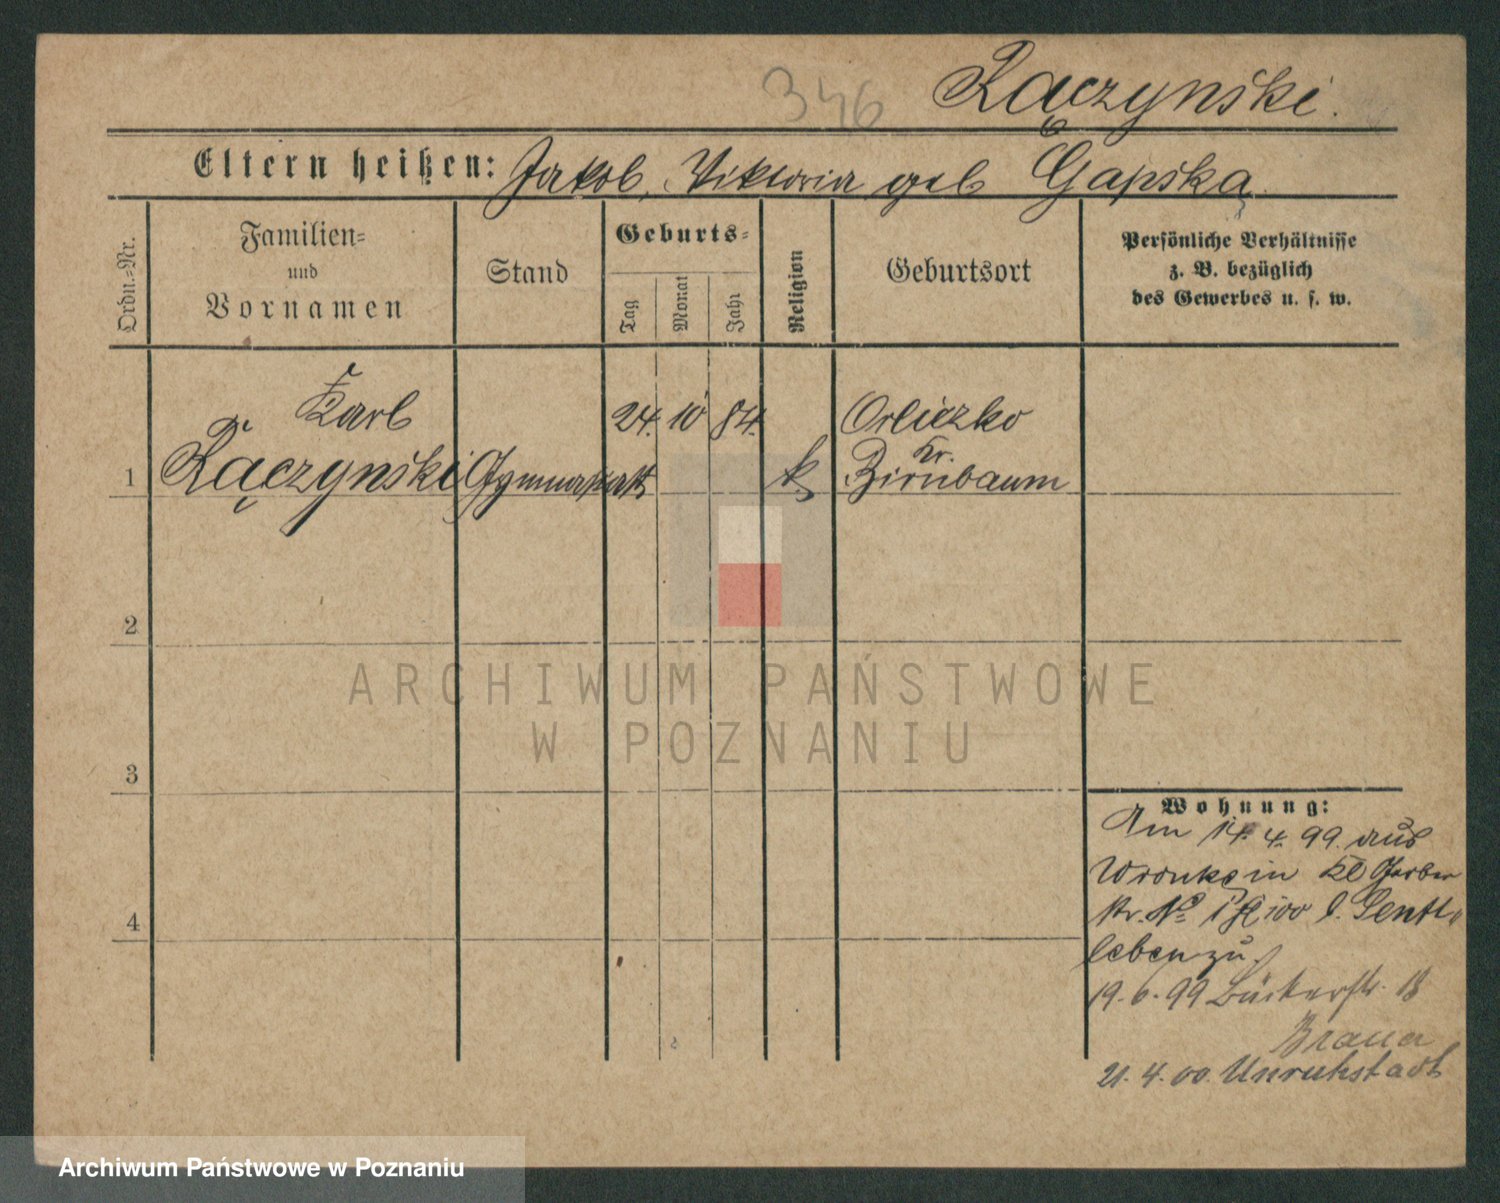 346 Rączynski.
Eltern heißen: Jakob, Viktoria geb Gapska
Ordn.=Nr.
Familien=
und
Vornamen
Stand
Geburts=
Tag
Monat
Jahr
Religion
Geburtsort
Persönliche Verhältnisse
z. B. bezüglich
des Gewerbes u. s. w.
Karl 24. 10 84. Orliczko
Kr.
1 Rączynski Gymnasiast k Birnbaum
2
3
4
Wohnung:
Am 14. 4. 99. aus
Wronke in Kl Gerber
str. No 1 b.
leben zu.
19. 6. 99 Bäckerstr. 18
Brauer
21. 4. 00. Unruhstadt
ARCHIWUM PAŃSTWOWE
W POZNANIU
Archiwum Państwowe w Poznaniu